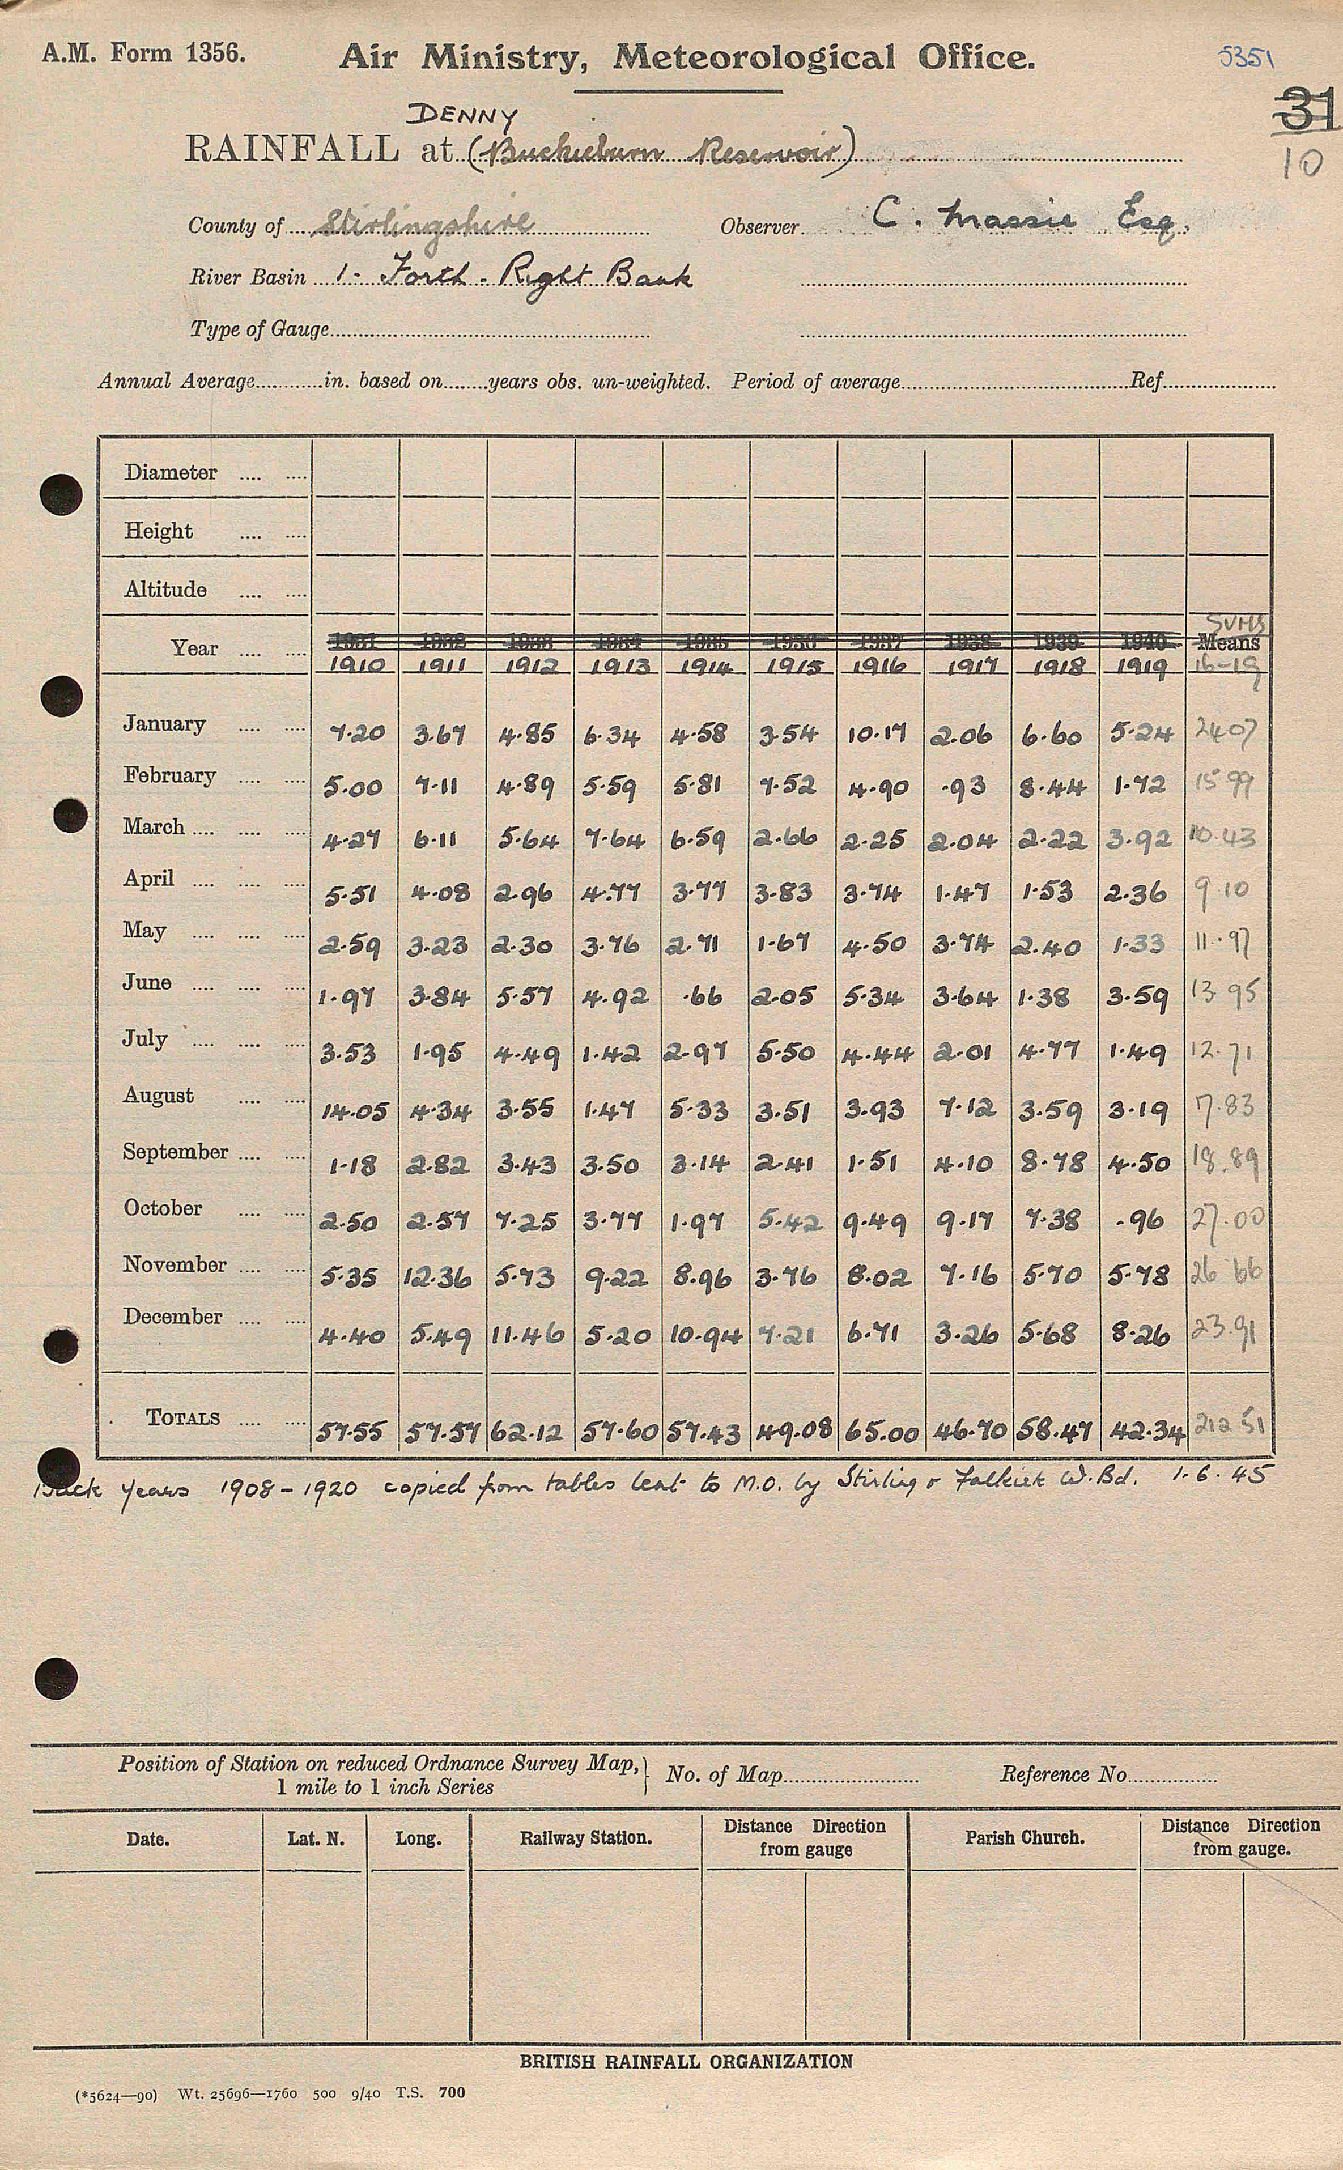 A.M. Form 1356. Air Ministry, Meteorological Office. 5351
31
10
DENNY
RAINFALL at (Buckieburn Reservoir)
County of Stirlingshire Observer C. Massie Esq.
River Basin 1. Forth. Right Bank
Type of Gauge
Annual Average in. based on years obs. un-weighted. Period of average Ref.
Diameter
Height
Altitude
SUMS
Year 1931 1932 1933 1934 1935 1936 1937 1938 1939 1940 Means
1910 1911 1912 1913 1914 1915 1916 1917 1918 1919 16-19
January 7.20 3.67 4.85 6.34 4.58 3.54 10.17 2.06 6.60 5.24 24.07
February 5.00 7.11 4.89 5.59 5.81 7.52 4.90 .93 8.44 1.72 15.99
March 4.27 6.11 5.64 7.64 6.59 2.66 2.25 2.04 2.22 3.92 10.43
April 5.51 4.08 2.96 4.77 3.77 3.83 3.74 1.47 1.53 2.36 9.10
May 2.59 3.23 2.30 3.76 2.71 1.67 4.50 3.74 2.40 1.33 11.97
June 1.97 3.84 5.57 4.92 .66 2.05 5.34 3.64 1.38 3.59 13.95
July 3.53 1.95 4.49 1.42 2.97 5.50 4.44 2.01 4.77 1.49 12.71
August 14.05 4.34 3.55 1.47 5.33 3.51 3.93 7.12 3.59 3.19 17.83
September 1.18 2.82 3.43 3.50 3.14 2.41 1.51 4.10 8.78 4.50 18.89
October 2.50 2.57 7.25 3.77 1.97 5.42 9.49 9.17 7.38 .96 27.00
November 5.35 12.36 5.73 9.22 8.96 3.76 8.02 7.16 5.70 5.78 26.66
December 4.40 5.49 11.46 5.20 10.94 7.21 6.71 3.26 5.68 8.26 23.91
TOTALS 57.55 57.57 62.12 57.60 57.43 49.08 65.00 46.70 58.47 42.34 212.51
Back years 1908-1920 copied from tables lent to M.O. by Stirling & Falkirk W.Bd. 1.6.45
Position of Station on reduced Ordnance Survey Map, No. of Map Reference No.
1 mile to 1 inch Series
Date. Lat. N. Long. Railway Station. Distance Direction from gauge Parish Church. Distance Direction from gauge.
BRITISH RAINFALL ORGANIZATION
(*5624—90) Wt. 25696—1760 500 9/40 T.S. 700